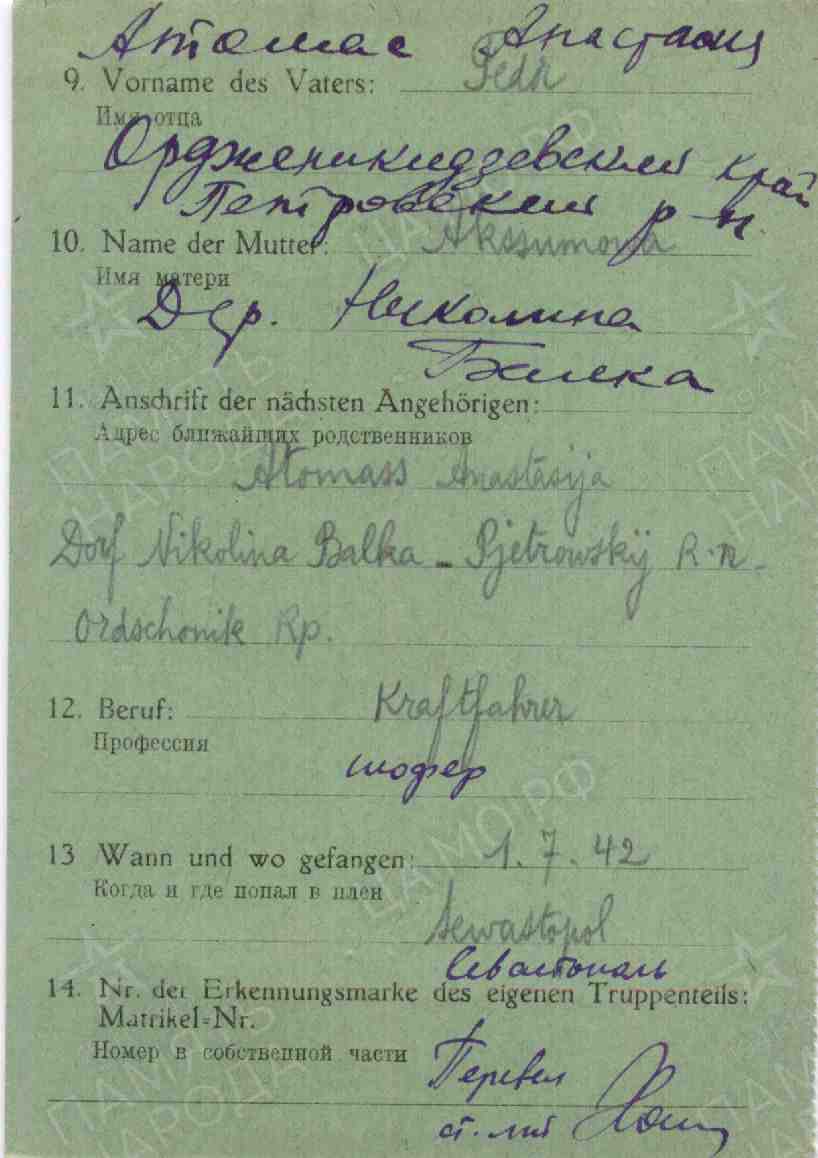 Атомас Анастасия
9. Vorname des Vaters: Fedr
Имя отца
Орджени­кидзевский край
Петровский р-н.
10. Name der Mutter:
Имя матери
Дер. Николина
Балка
11. Anschrift der nächsten Angehörigen:
Адрес ближайших родственников
Atomass Anastasija
Dorf Nikolina Balka - Pjetrowskij R-n-
Ordschonik Kp.
12. Beruf: Kraftfahrer
Профессия
шофер
13 Wann und wo gefangen: 1.7.42
Когда и где попал в плен
Sewastopol
Севастополь
14. Nr. der Erkennungsmarke des eigenen Truppenteils:
Matrikel-Nr.
Номер в собственной части
Перевел
ст. лит
ПАМЯТЬ НАРОДА
ЦАМО.РФ